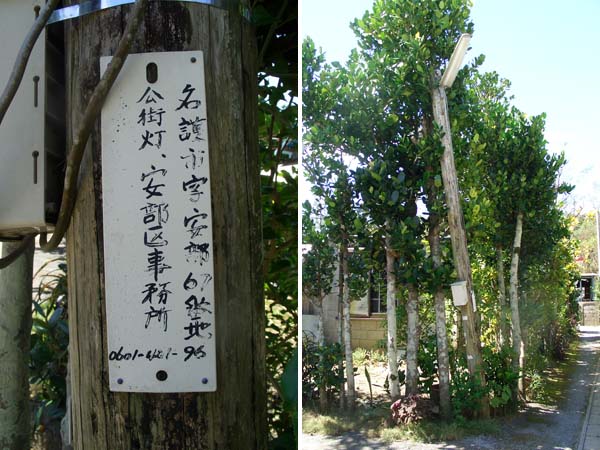 名護市字安部67番地
公街灯、安部区事務所